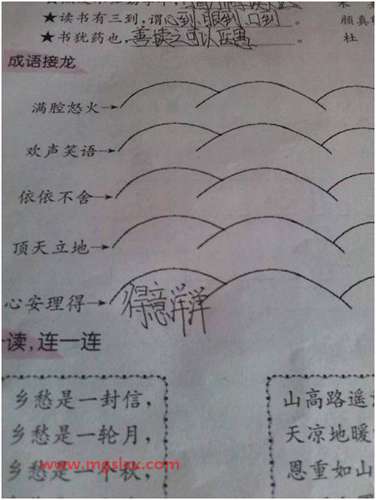 ★读书有三到,谓心到、眼到、口到。
★书犹药也,善读之可以医愚。 杜
成语接龙
满腔怒火
欢声笑语
依依不舍
顶天立地
心安理得 得意洋洋
读,连一连
乡愁是一封信,
乡愁是一轮月,
乡愁是一个秋,
山高路遥
天凉地暖
恩重如山
www.mgslxx.com